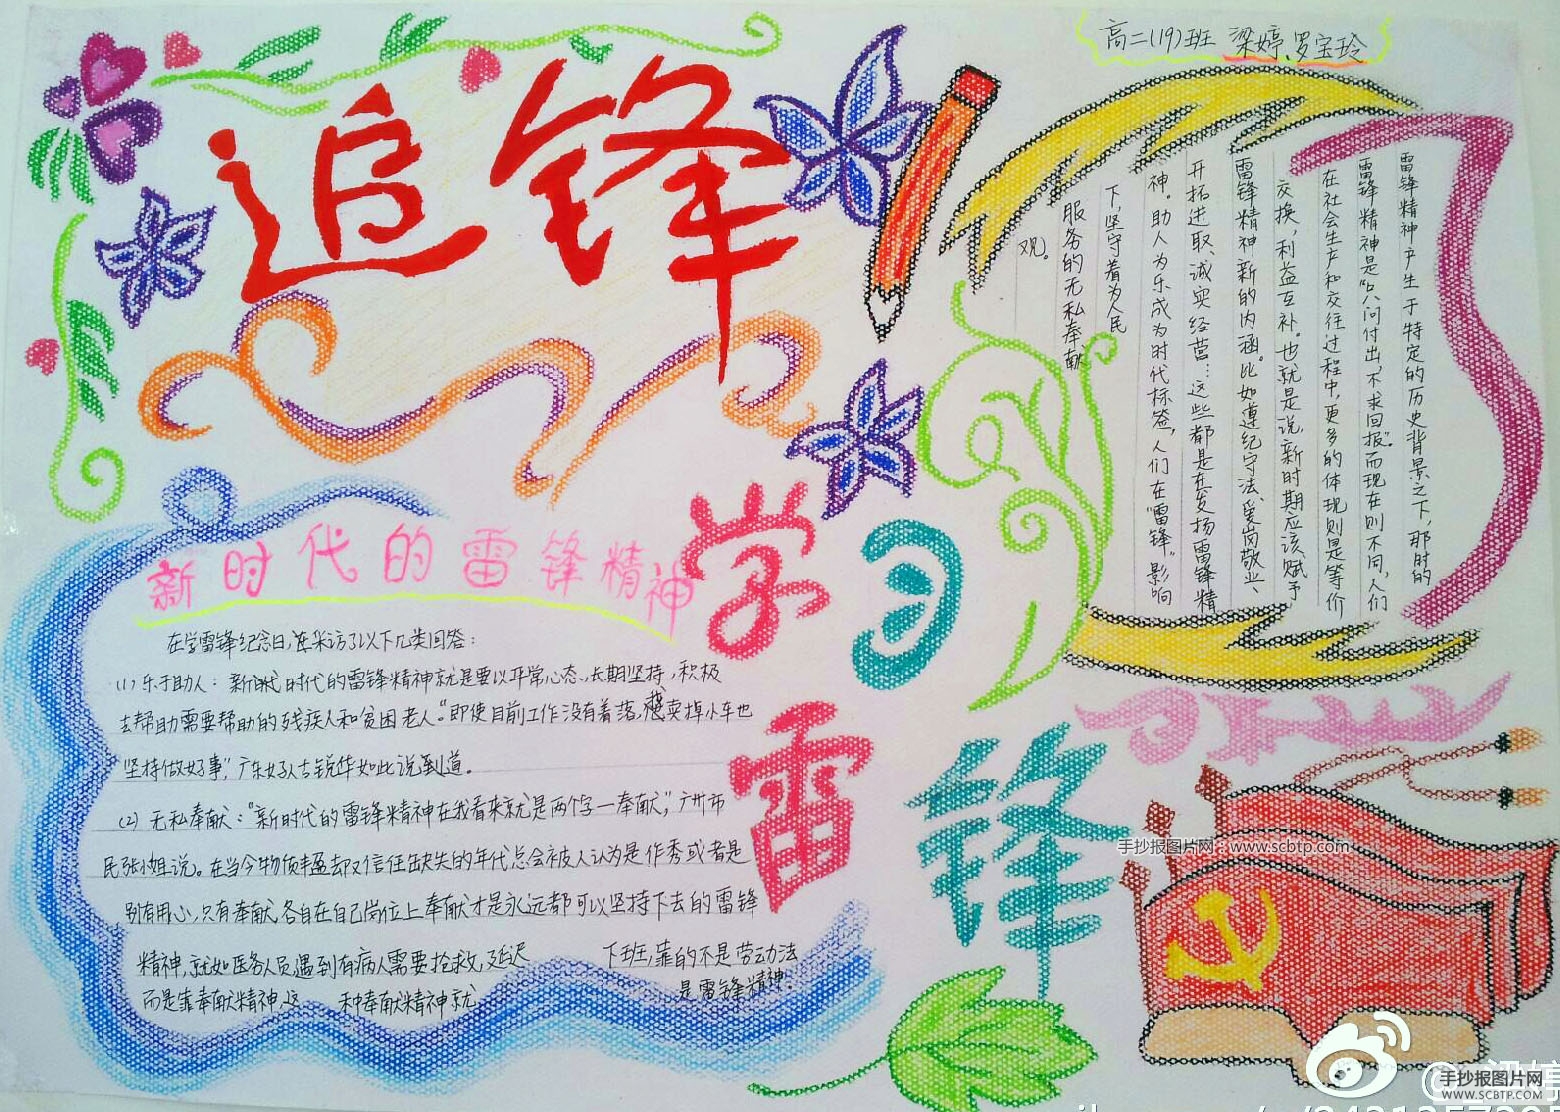 高二(19)班 梁婷、罗宝玲
追锋
雷锋精神产生于特定的历史背景之下，那时的
雷锋精神是“只问付出，不求回报”。而现在则不同，人们
在社会生产和交往过程中，更多的体现则是等价
交换，利益互补。也就是说，新时期应该赋予
雷锋精神新的内涵。比如遵纪守法、爱岗敬业、
开拓进取、诚实经营…这些都是在发扬雷锋精
神。助人为乐成为时代标签，人们在“雷锋”影响
下，坚守着为人民
服务的无私奉献
观。
新时代的雷锋精神
在学雷锋纪念日，采访了以下几类回答：
(1) 乐于助人：新时代的雷锋精神就是要以平常心态，长期坚持，积极
去帮助需要帮助的残疾人和贫困老人。“即使目前工作没有着落，卖掉小车也
坚持做好事”，广东好人古锐华如此说到道。
(2) 无私奉献：“新时代的雷锋精神在我看来就是两个字一奉献”，广州市
民张小姐说。在当今物质丰盈却又信任缺失的年代总会被人认为是作秀或者是
别有用心，只有奉献各自在自己岗位上奉献才是永远都可以坚持下去的雷锋
精神，就如医务人员遇到有病人需要抢救，延迟 下班，靠的不是劳动法
而是靠奉献精神，这 种奉献精神就 是雷锋精神。
学习
雷锋
手抄报图片网：www.scbtp.com
手抄报图片网
WWW.SCBTP.COM